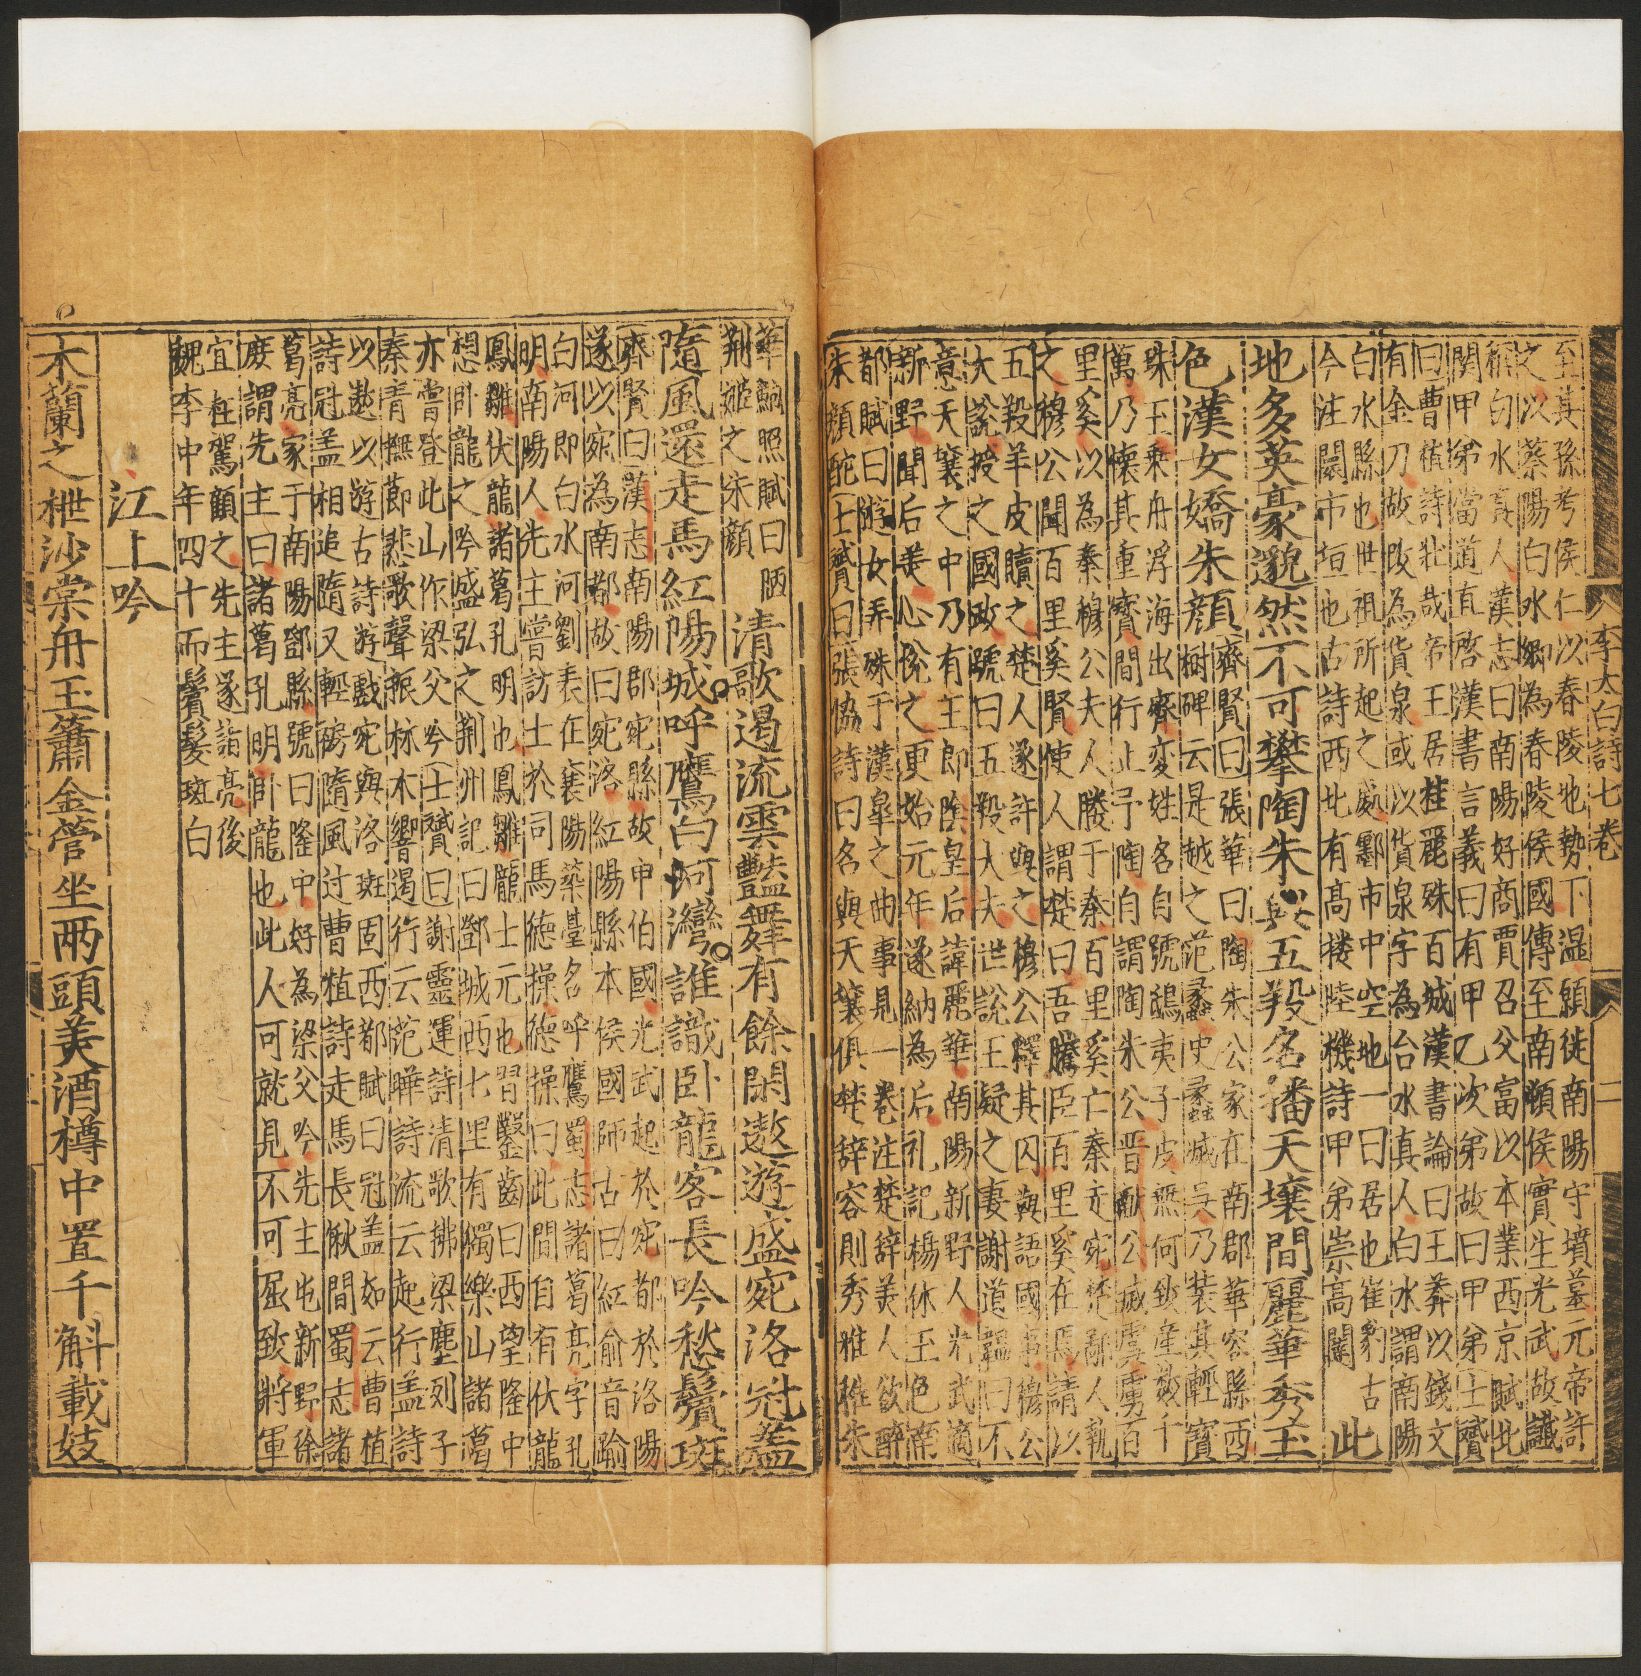 李太白詩七卷 二
至其孫考侯仁以春陵地勢下溫願徙南陽守墳墓元帝許
之以蔡陽白水鄉為春陵侯國傳至南頓侯實生光武故讖
稱白水真人漢志曰南陽好商賈召父富以本業西京賦北
闕甲第當道直啓漢書言義曰有甲乙次第故曰甲第士贇
曰曹植詩壯哉帝王居桂麗殊百城漢書論曰王莽以錢文
有金刀故改為貨泉或以貨泉字為白水真人白水謂南陽
白水縣也世祖所起之處鄽市中空地一曰居也崔豹古
今注闤市垣也古詩西北有高楼陸機詩甲第崇高闥
此
地多英豪邈然不可攀陶朱與五羖名播天壤間麗華秀玉
色漢女嬌朱顏
齊賢曰張華曰陶朱公家在南郡華容縣西
樹碑云是越之范蠡史蠡滅吳乃裝其輕寶
珠玉乘舟浮海出齊変姓名自號鴟夷子皮無何致產數千
萬乃懷其重寶間行止于陶自謂陶朱公晋獻公滅虞虜百
里奚以為秦穆公夫人媵于秦百里奚亡秦走宛楚鄙人執
之穆公聞百里奚賢使人謂楚曰吾媵臣百里奚在焉請以
五羖羊皮贖之楚人遂許與之穆公釋其囚與語國事穆公
大說授之國政號曰五羖大夫世說王凝之妻謝道韞曰不
意天壤之中乃有王郎陰皇后諱麗華南陽新野人光武適
新野聞后美心悅之更始元年遂納為后礼記楊休玉色南
都賦曰游女弄珠于漢皋之曲事見一卷注楚辞美人欲醉
朱顏酡士贇曰張協詩曰名與天壤俱楚辞容則秀雅稚朱
華鮑照賦曰陋
荆姬之朱顏
清歌遏流雲豔舞有餘閑遨遊盛宛洛冠蓋
隨風還走馬紅陽城呼鷹白河灣誰識卧龍客長吟愁鬢斑
齊賢曰漢志南陽郡宛縣故申伯國光武起於宛都於洛陽
遂以宛為南都故曰宛洛紅陽縣本侯國師古曰紅俞音踰
白河即白水河劉表在襄陽築臺名呼鷹蜀志諸葛亮字孔
明南陽人先主嘗訪士於司馬德操德操曰此間自有伏龍
鳳雛伏龍諸葛孔明也鳳雛龍士元也習鑿齒曰西望隆中
想卧龍之吟盛弘之荆州記曰鄧城西七里有獨樂山諸葛
亦嘗登此山作梁父吟士贇曰謝靈運詩清歌拂梁塵列子
秦青撫節悲歌聲振林木響遏行云范曄詩流云起行盖詩
以遨以游古詩游戲宛與洛班固西都賦曰冠盖如云曹植
詩冠盖相追隨又輕隨風过曹植詩走馬長楸間蜀志諸
葛亮家于南陽鄧縣號曰隆中好為梁父吟先主屯新野徐
庶謂先主曰諸葛孔明卧龍也此人可就見不可屈致將軍
宜枉駕顧之先主遂詣亮後
魏李中年四十而鬢髮斑白
江上吟
木蘭之枻沙棠舟玉簫金管坐兩頭美酒樽中置千斛載妓